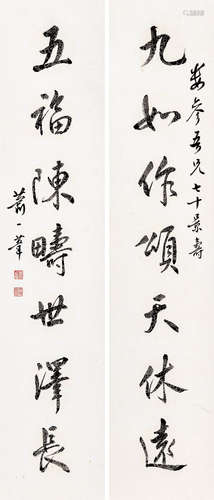 九如作頌天休遠
参吾兄七十景壽
五福陳疇世澤長
蕭一葦